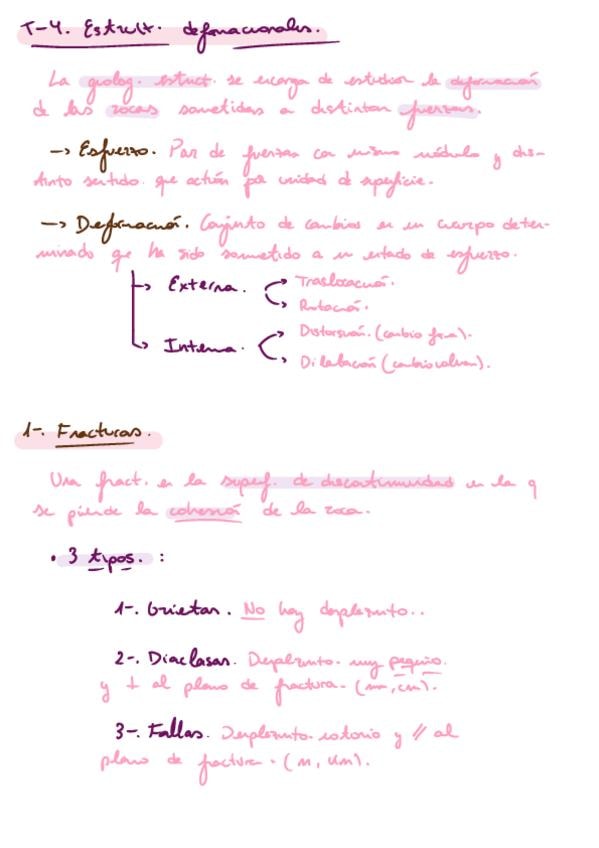 T-4. Estruct. deformacionales.
La geolog. estruct. se encarga de estudiar la deformación
de las rocas sometidas a distintas fuerzas.
-> Esfuerzo. Par de fuerzas con mismo módulo y dis-
tinto sentido que actúan por unidad de superficie.
-> Deformación. Conjunto de cambios en un cuerpo deter-
minado que ha sido sometido a un estado de esfuerzo.
Externa. Traslocación.
Rotación.
Interna. Distorsión. (cambio forma).
Dilatación (cambio volumen).
1-. Fracturas.
Una fract. es la superf. de discontinuidad en la q
se pierde la cohesión de la roca.
• 3 tipos. :
1-. Grietas. No hay desplzmnto..
2-. Diaclasas. Desplzmnto. muy pequño.
y ⊥ al plano de fractura. (mm, cm).
3-. Fallas. Desplzmnto. notorio y // al
plano de fractura. (m, km).